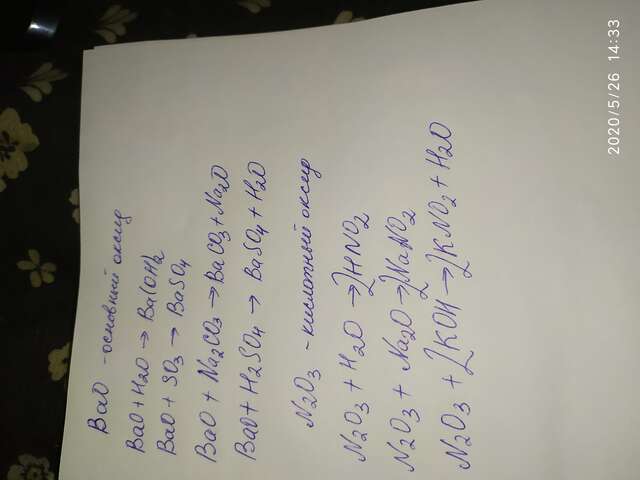 BaO - основный оксид
BaO + H2O → Ba(OH)2
BaO + SO3 → BaSO4
BaO + Na2CO3 → BaCO3 + Na2O
BaO + H2SO4 → BaSO4 + H2O
N2O3 - кислотный оксид
N2O3 + H2O → 2HNO2
N2O3 + Na2O → 2NaNO2
N2O3 + 2KOH → 2KNO2 + H2O
2020/5/26 14:33